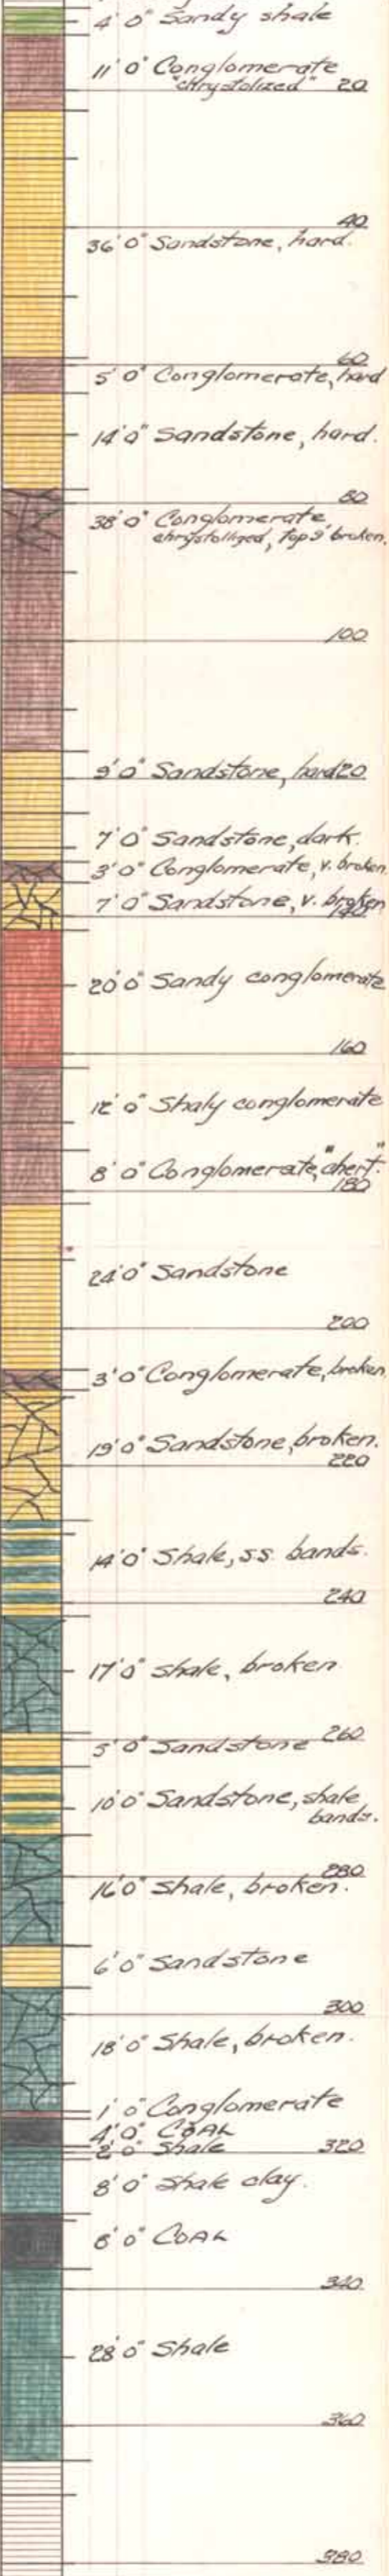 4' 0" Sandy shale
11' 0" Conglomerate
"chrystolized" 20
40
36' 0" Sandstone, hard.
60
5' 0" Conglomerate, hard
14' 0" Sandstone, hard.
80
38' 0" Conglomerate
chrystollized, Top 9' broken.
100
9' 0" Sandstone, hard 20
7' 0" Sandstone, dark.
3' 0" Conglomerate, v. broken.
7' 0" Sandstone, v. broken
140
20' 0" Sandy conglomerate
160
12' 0" Shaly conglomerate
8' 0" Conglomerate, "chert."
180
24' 0" Sandstone
200
3' 0" Conglomerate, broken.
19' 0" Sandstone, broken.
220
14' 0" Shale, ss. bands.
240
17' 0" shale, broken
260
5' 0" Sandstone
10' 0" Sandstone, shale
bands.
280
16' 0" Shale, broken.
6' 0" Sandstone
300
18' 0" Shale, broken.
1' 0" Conglomerate
4' 0" COAL
2' 0" Shale 320
8' 0" Shale clay.
8' 0" COAL
340
28' 0" Shale
360
380